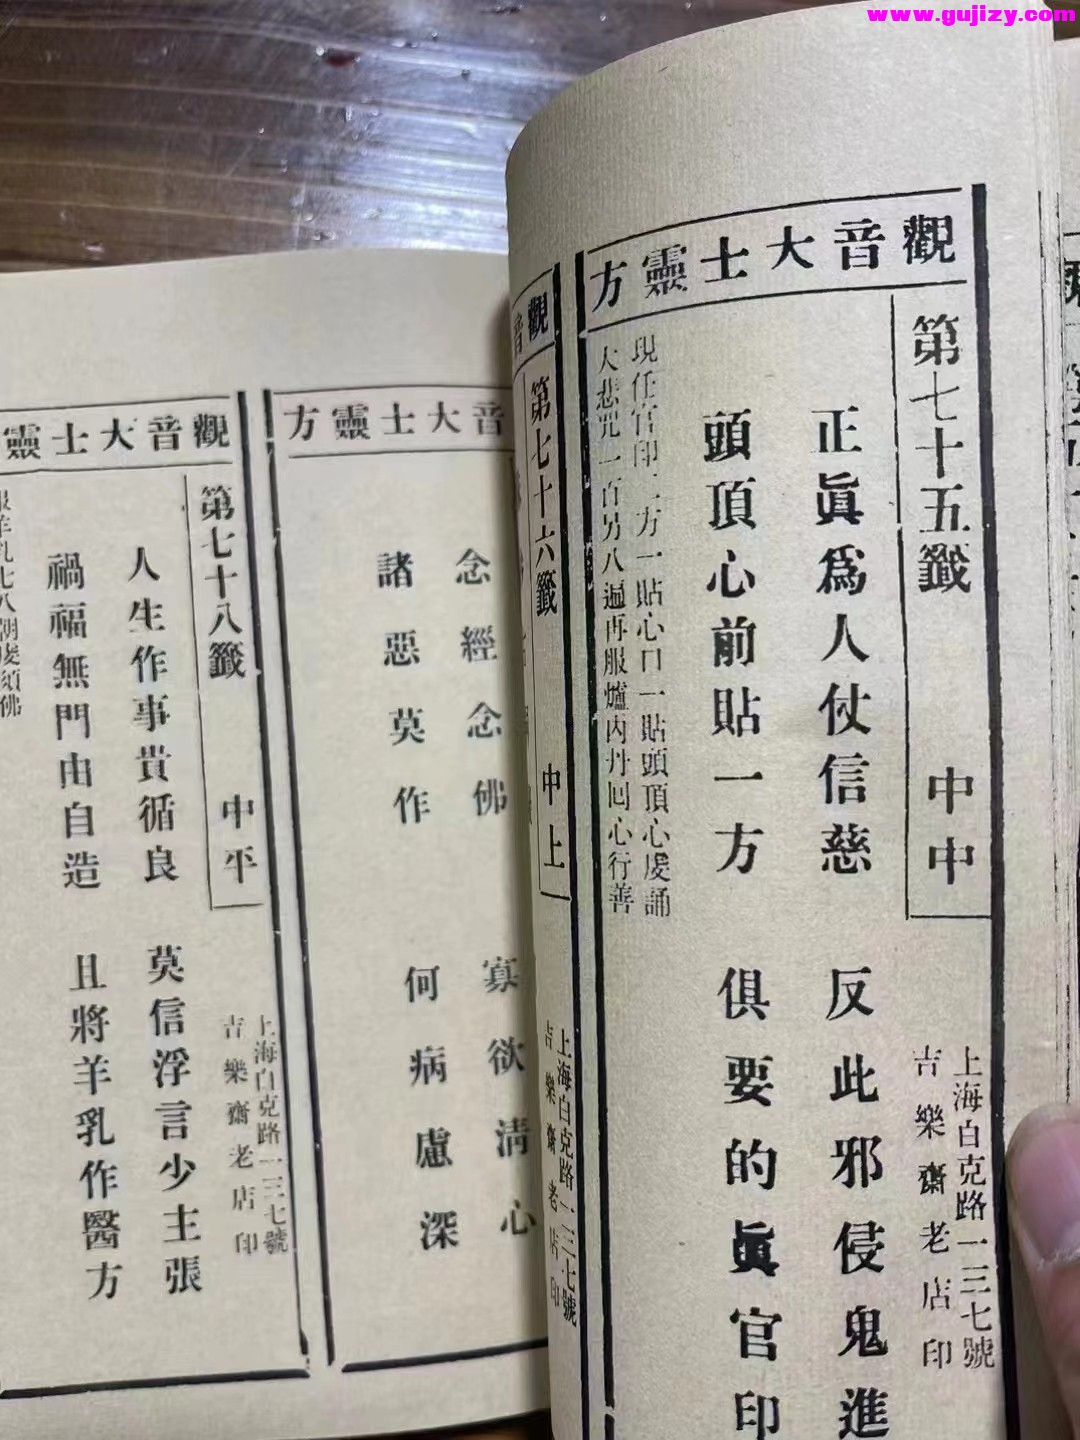 www.gujizy.com
觀音大士靈方
第七十五籤 中中
上海白克路一三七號
吉樂齋老店印
正眞爲人仗信慈 反此邪侵鬼進
頭頂心前貼一方 俱要的眞官印
現任官印二方一貼心口一貼頭頂心處誦
大悲咒一百另八遍再服爐內丹回心行善
觀音
第七十六籤 中上
上海白克路一三七號
吉樂齋老店印
音大士靈方
念經念佛 寡欲清心
諸惡莫作 何病慮深
觀音大士靈
第七十八籤 中平
上海白克路一三七號
吉樂齋老店印
人生作事貴循良 莫信浮言少主張
禍福無門由自造 且將羊乳作醫方
服羊乳七八朝處須佛